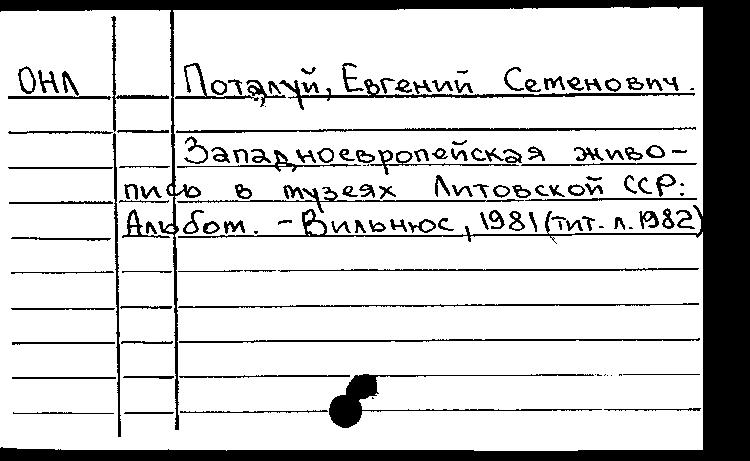 ОНЛ Поталуй, Евгений Семенович.
Западноевропейская живо-
пись в музеях Литовской ССР:
Альбом. - Вильнюс, 1981 (тит. л. 1982)